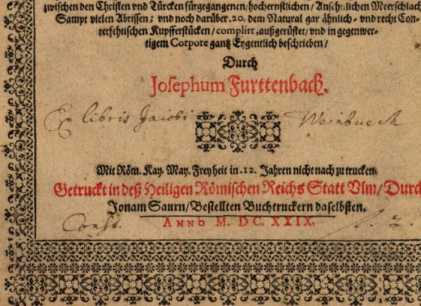 zwischen den Christen vnd Türcken fürgegangenen/hochernstlichen/ Ansehnlichen Meerschlacht
Sampt vielen Abrissen; vnd noch darüber.20. dem Natural gar ähnlich- vnd recht Con-
terfehtischen Kupfferstücken/complirt, außgerüstet/ vnd in gegenwer-
tigem Corpore gantz Eygentlich beschrieben/
Durch
Josephum Furttenbach.
Ex libris Jacobi
Mit Röm. Kay. May. Freyheit in.12. Jahren nicht nach zu trucken.
Getruckt in deß Heiligen Römischen Reichs Statt Vlm/ Durch
Jonam Saurn/Bestellten Buchtruckern daselbsten.
ANNO M. DC. XXIX.